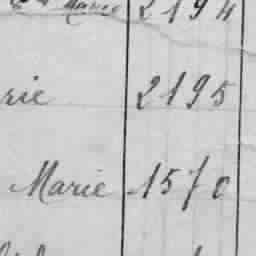 Marie 2194
rie 2195
Marie 1570